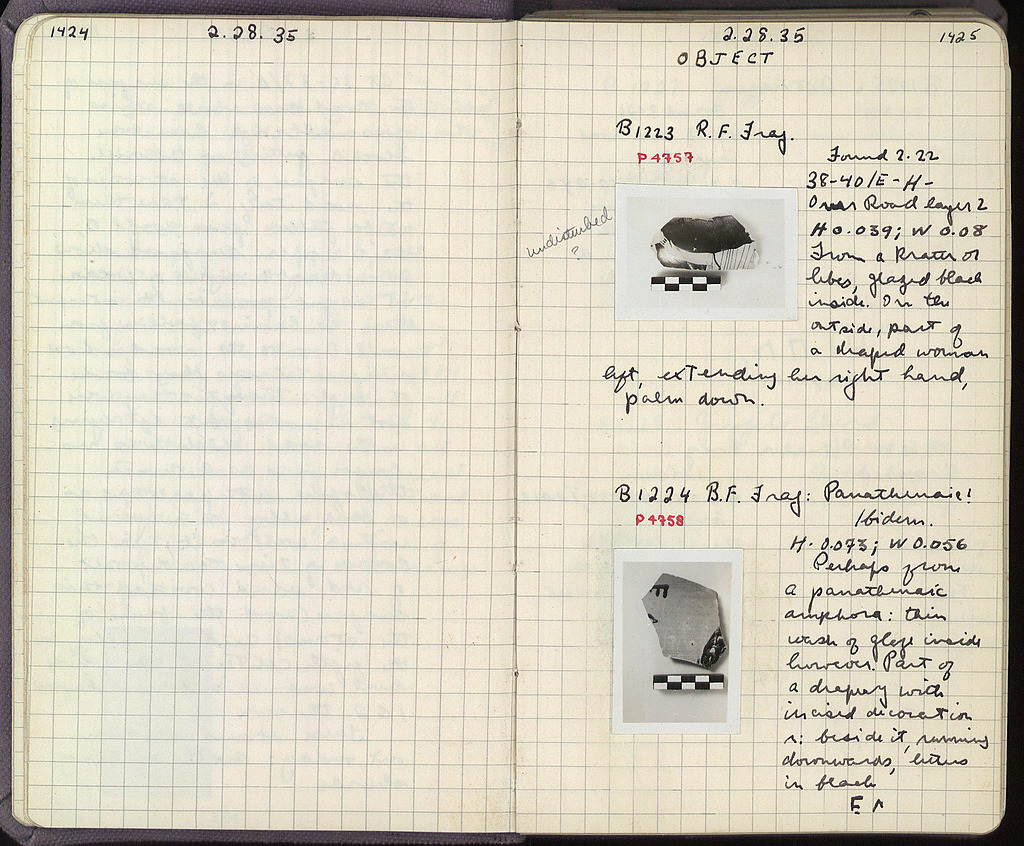 1424
2.28.35
2.28.35
1425
OBJECT
B1223 R.F. Frag.
P4757
Found 2.22
38-40/E-H-
Over Road layer 2
H 0.039; W 0.08
From a krater or
lebes, glazed black
inside. On the
outside, part of
a draped woman
left, extending her right hand,
palm down.
undisturbed
?
B1224 B.F. Frag: Panathenaic!
P4758
Ibidem.
H. 0.073; W 0.056
Perhaps from
a panathenaic
amphora: thin
wash of glaze inside
however. Part of
a drapery with
incised decoration
r: beside it, running
downwards, letters
in black
E Λ